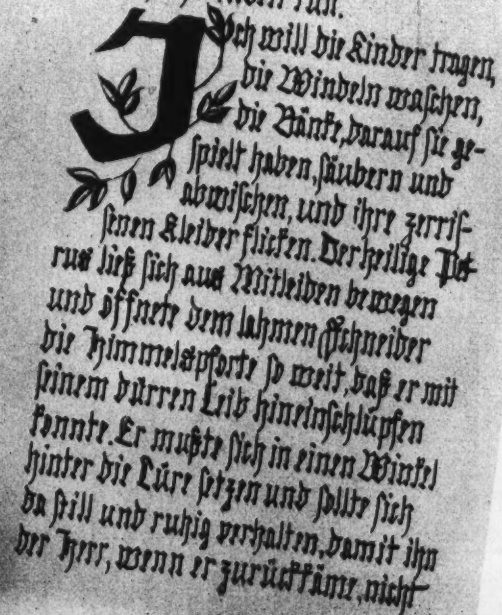 tun.
Ich will die Kinder tragen,
die Windeln waschen,
die Bänke, darauf sie ge-
spielt haben, säubern und
abwischen, und ihre zerris-
senen Kleider flicken. Der heilige Pet-
rus ließ sich aus Mitleiden bewegen
und öffnete dem lahmen Schneider
die Himmelspforte so weit, daß er mit
seinem dürren Leib hineinschlüpfen
konnte. Er mußte sich in einen Winkel
hinter die Türe setzen und sollte sich
da still und ruhig verhalten, damit ihn
der Herr, wenn er zurückkäme, nicht